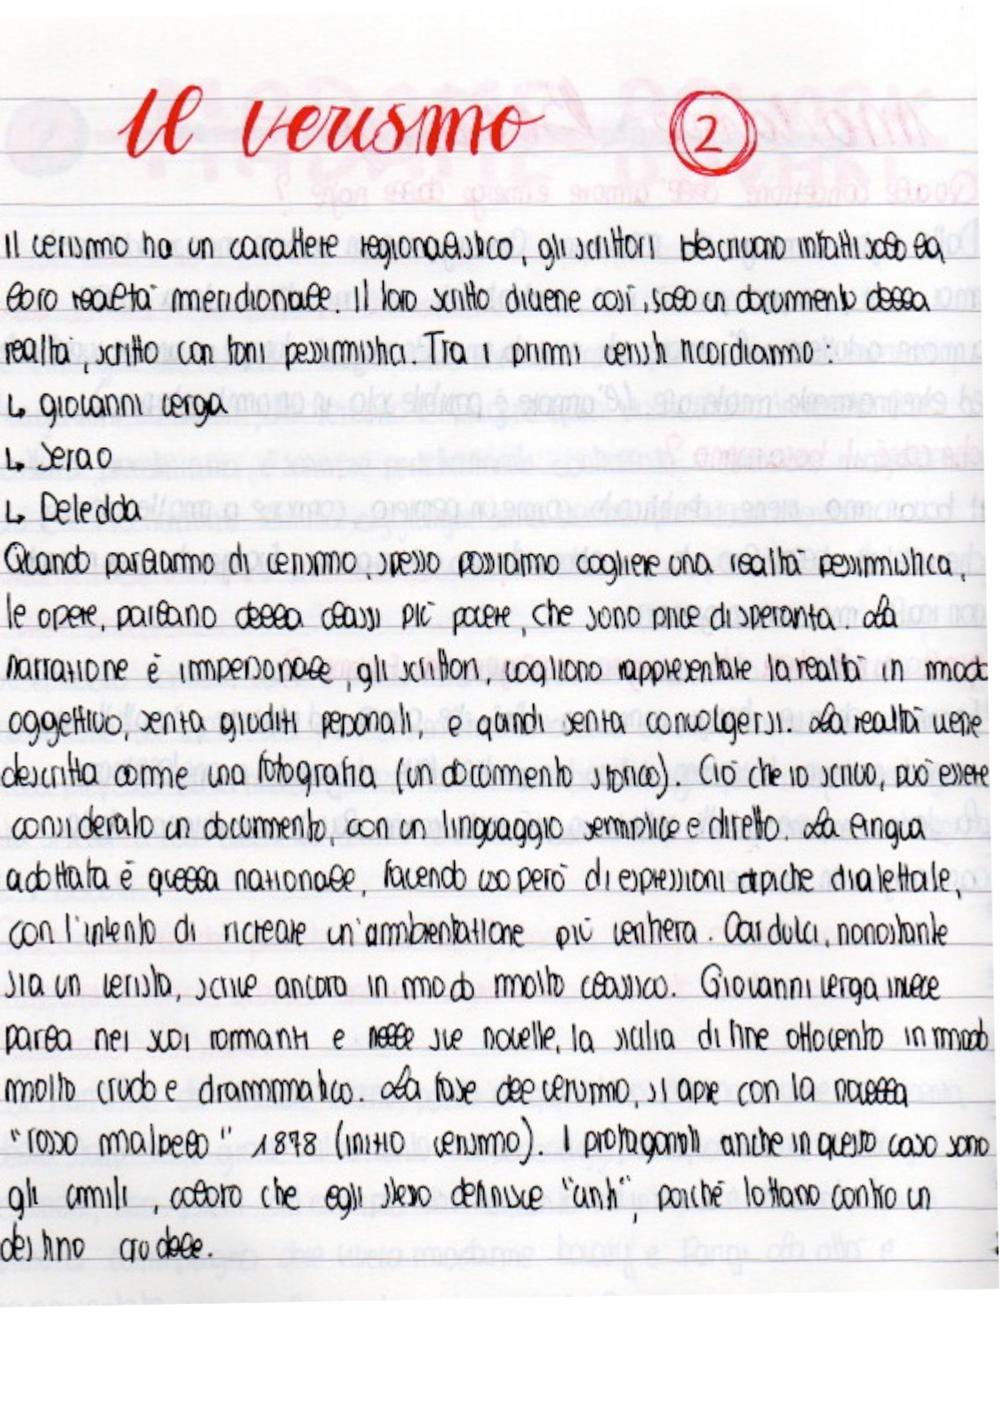 Il verismo 2
Il verismo ha un carattere regionalistico, gli scrittori descrivono infatti solo la
loro realtà meridionale. Il loro scritto diviene così, solo un documento della
realtà, scritto con toni pessimistici. Tra i primi veristi ricordiamo:
↳ giovanni verga
↳ Serao
↳ Deledda
Quando parliamo di verismo, spesso possiamo cogliere una realtà pessimistica,
le opere, parlano della classi più povere, che sono prive di speranza. La
narrazione è impersonale, gli scrittori, vogliono rappresentate la realtà in modo
oggettivo, senza giudizi personali, e quindi senza convolgersi. La realtà viene
descritta come una fotografia (un documento storico). Ciò che io scrivo, può essere
considerato un documento, con un linguaggio semplice e diretto. La lingua
adottata è quella nazionale, facendo uso però di espressioni tipiche dialettale,
con l'intento di ricreare un'ambientazione più veritiera. Carducci, nonostante
sia un verista, scrive ancora in modo molto classico. Giovanni verga invece
parla nei suoi romanzi e nelle sue novelle, la sicilia di fine ottocento in modo
molto crudo e drammatico. La fase del verismo, si apre con la novella
"rosso malpelo" 1878 (inizio verismo). I protagonisti anche in questo caso sono
gli umili, coloro che egli stesso definisce "vinti", poiché lottano contro un
destino crudele.